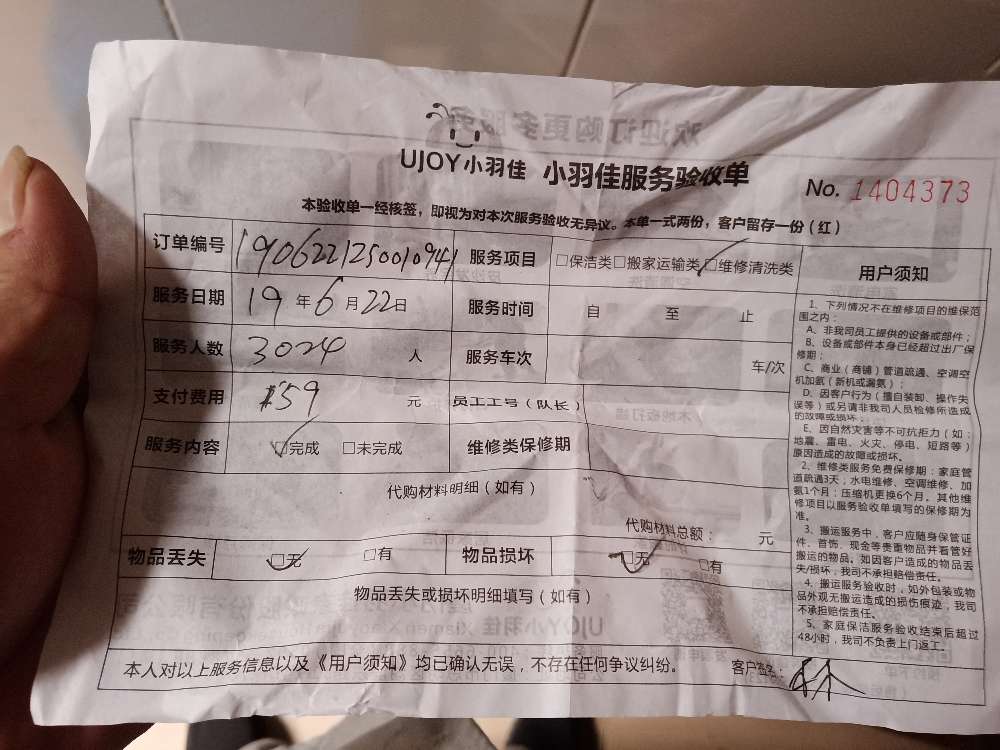 UJOY小羽佳 小羽佳服务验收单
No. 1404373
本验收单一经核签，即视为对本次服务验收无异议。本单一式两份，客户留存一份（红）
订单编号 19062212500109441 服务项目 □保洁类□搬家运输类□维修清洗类
服务日期 19年6月22日 服务时间 自 至 止
服务人数 3024 人 服务车次 车/次
支付费用 159 元 员工工号（队长）
服务内容 □完成 □未完成 维修类保修期
代购材料明细（如有）
代购材料总额： 元
物品丢失 □无 □有 物品损坏 □无 □有
物品丢失或损坏明细填写（如有）
本人对以上服务信息以及《用户须知》均已确认无误，不存在任何争议纠纷。 客户签名：
用户须知
1、下列情况不在维修项目的维保范
围之内：
A、非我司员工提供的设备或部件；
B、设备或部件本身已经超过出厂保
修期；
C、商业（商铺）管道疏通、空调空
机加氨（新机或漏氨）；
D、因客户行为（擅自装卸、操作失
误等）或另请非我司人员检修所造成
的故障或损坏；
E、因自然灾害等不可抗拒力（如：
地震、雷电、火灾、停电、短路等）
原因造成的故障或损坏。
2、维修类服务免费保修期：家庭管
道疏通3天；水电维修、空调维修、加
氨1个月；压缩机更换6个月。其他维
修项目以服务验收单填写的保修期为
准。
3、搬运服务中，客户应随身保管证
件、首饰、现金等贵重物品并看管好
搬运的物品。如因客户造成的物品丢
失/损坏，我司不承担赔偿责任。
4、搬运服务验收时，如外包装或物
品外观无搬运造成的损伤痕迹，我司
不承担赔偿责任。
5、家庭保洁服务验收结束后超过
48小时，我司不负责上门返工。